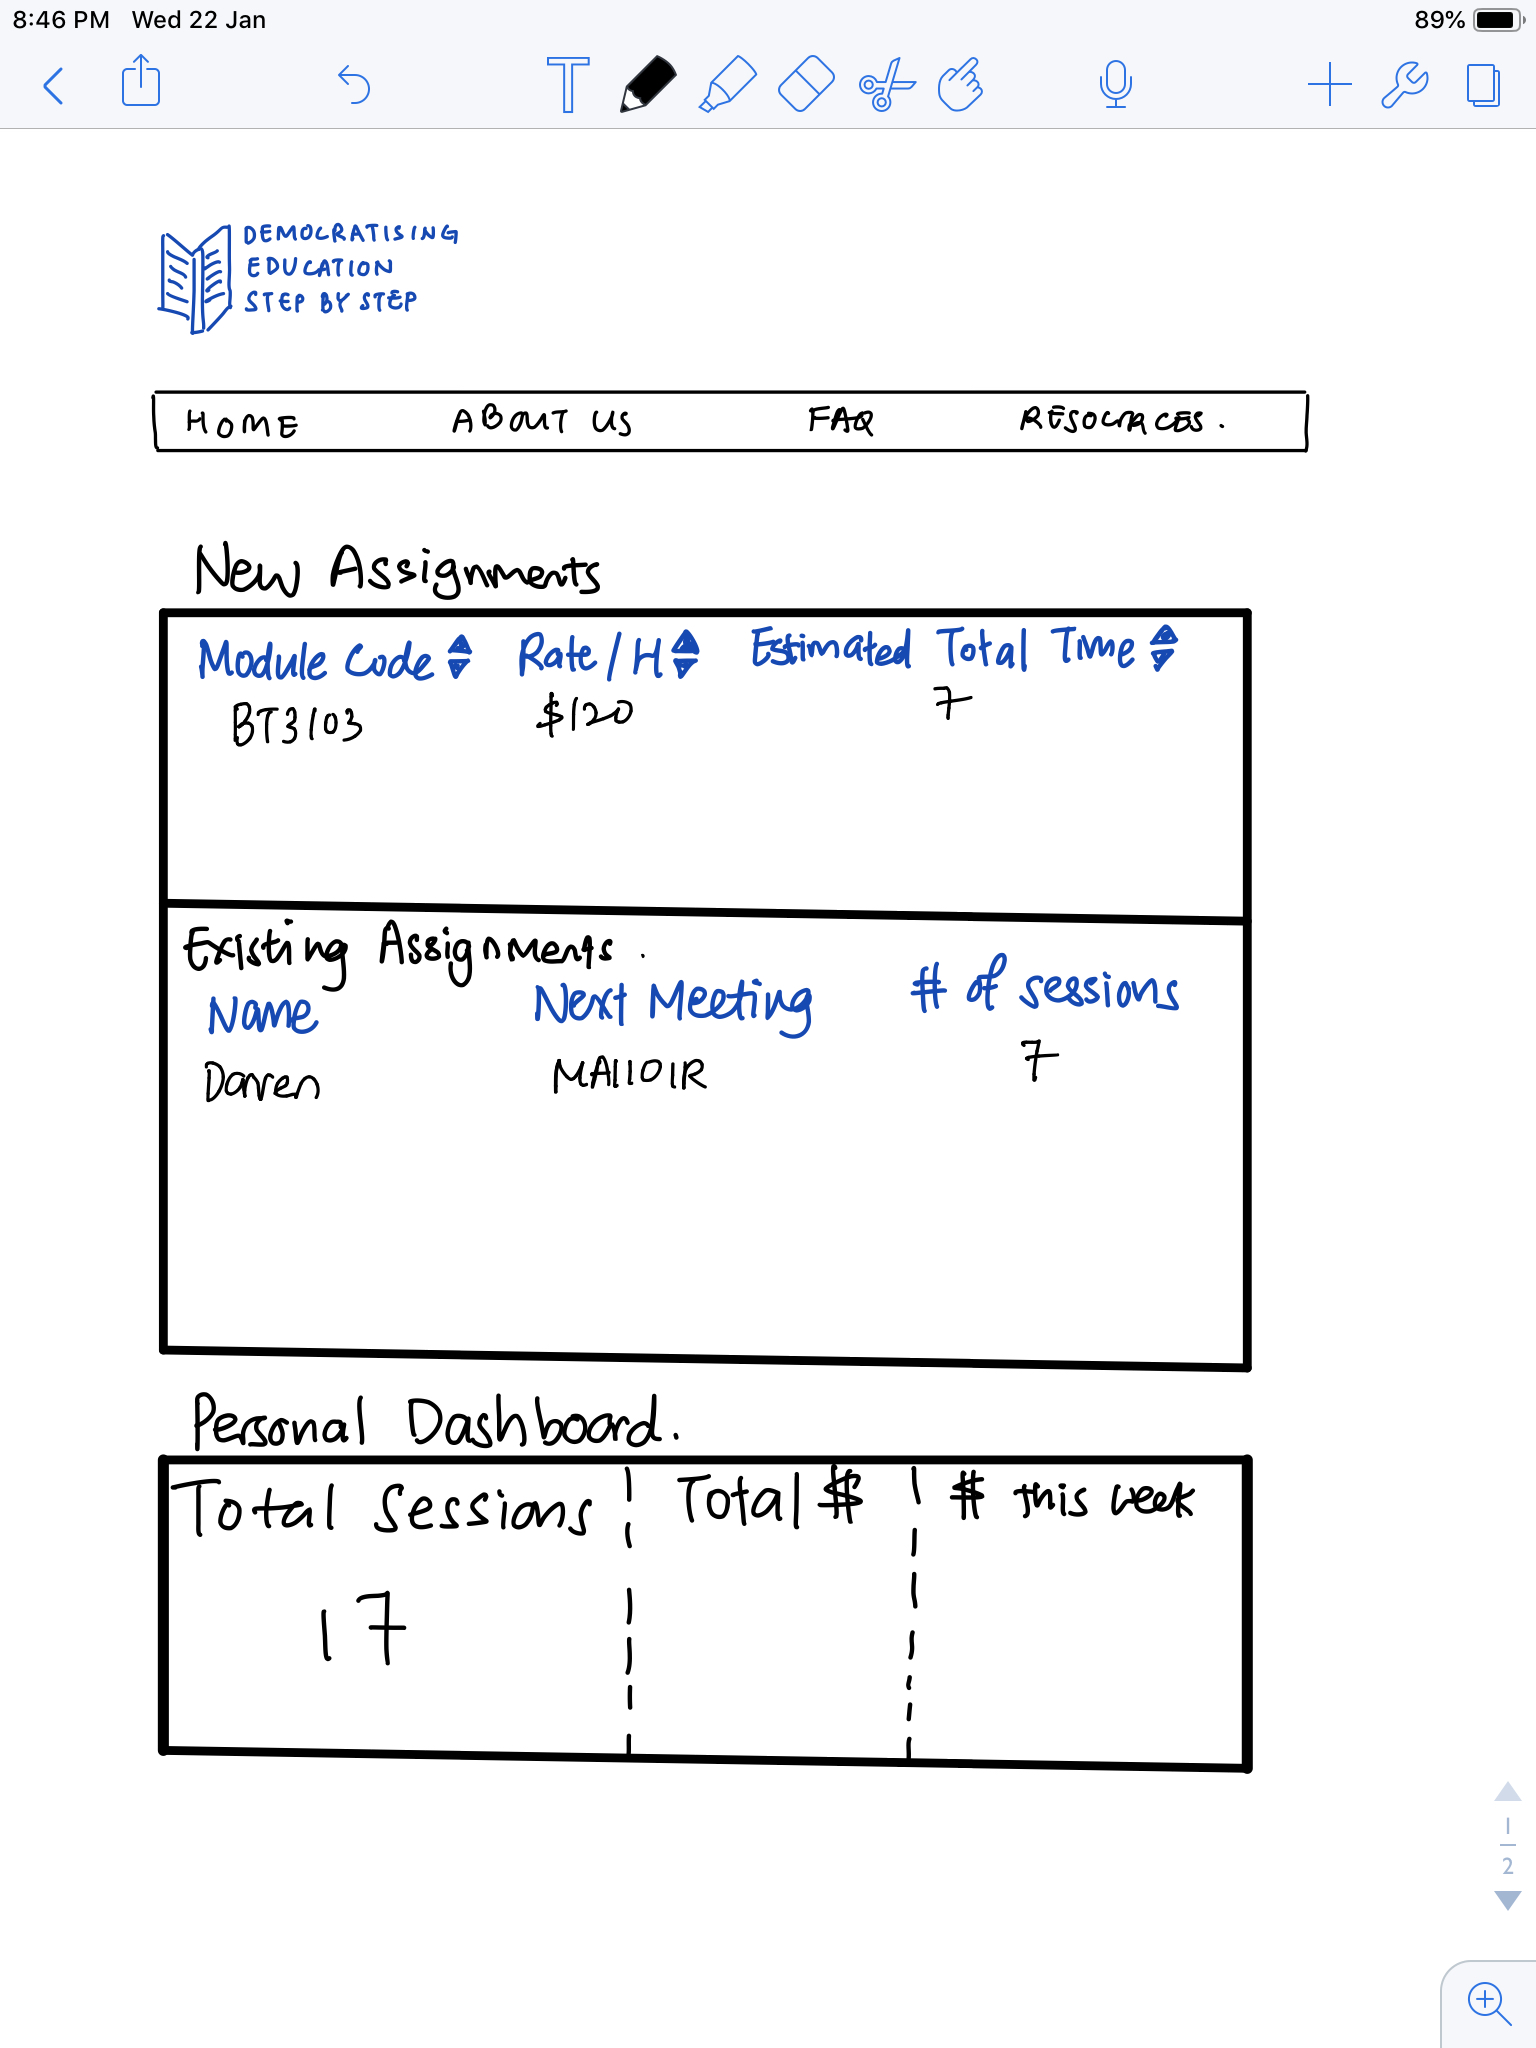 8:46 PM Wed 22 Jan 89%
T
DEMOCRATISING
EDUCATION
STEP BY STEP
HOME ABOUT US FAQ RESOURCES.
New Assignments
Module Code Rate/H Estimated Total Time
BT3103 $120 7
Existing Assignments.
Name Next Meeting # of sessions
Darren MA1101R 7
Personal Dashboard.
Total Sessions Total $ $ this week
17
1
2